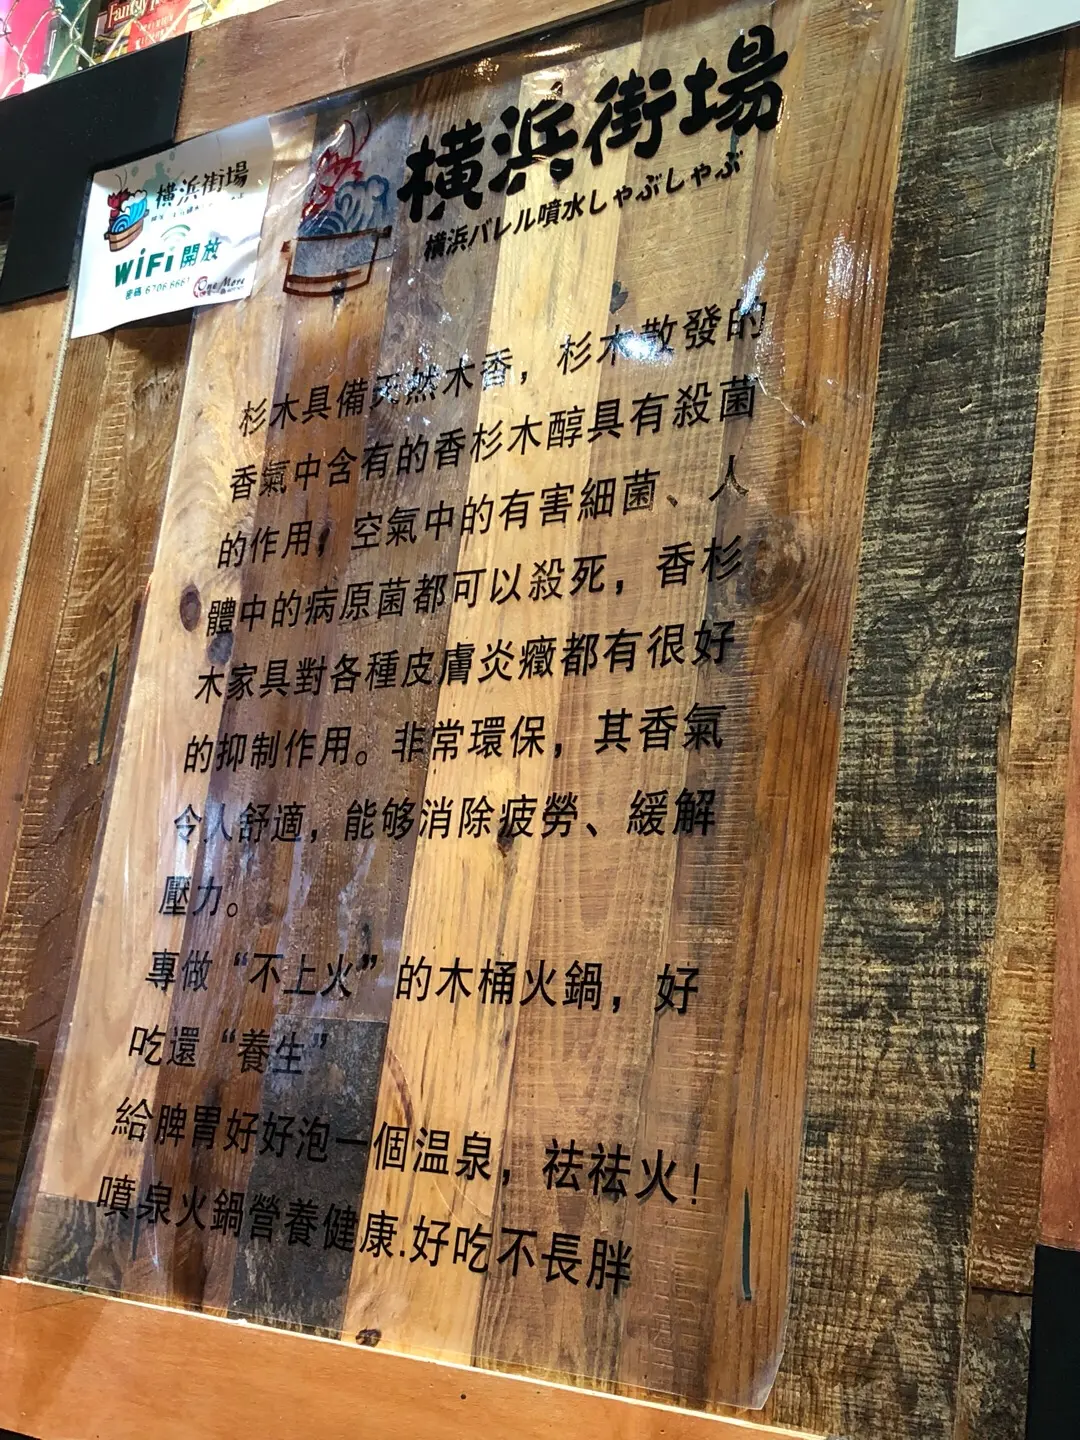 Family
横浜街場
WiFi 開放
One More
横浜街場
横浜バレル噴水しゃぶしゃぶ
杉木具備天然木香，杉木散發的
香氣中含有的香杉木醇具有殺菌
的作用，空氣中的有害細菌、人
體中的病原菌都可以殺死，香杉
木家具對各種皮膚炎癥都有很好
的抑制作用。非常環保，其香氣
令人舒適，能够消除疲勞、緩解
壓力。
專做“不上火”的木桶火鍋，好
吃還“養生”
給脾胃好好泡一個温泉，祛祛火！
噴泉火鍋營養健康.好吃不長胖